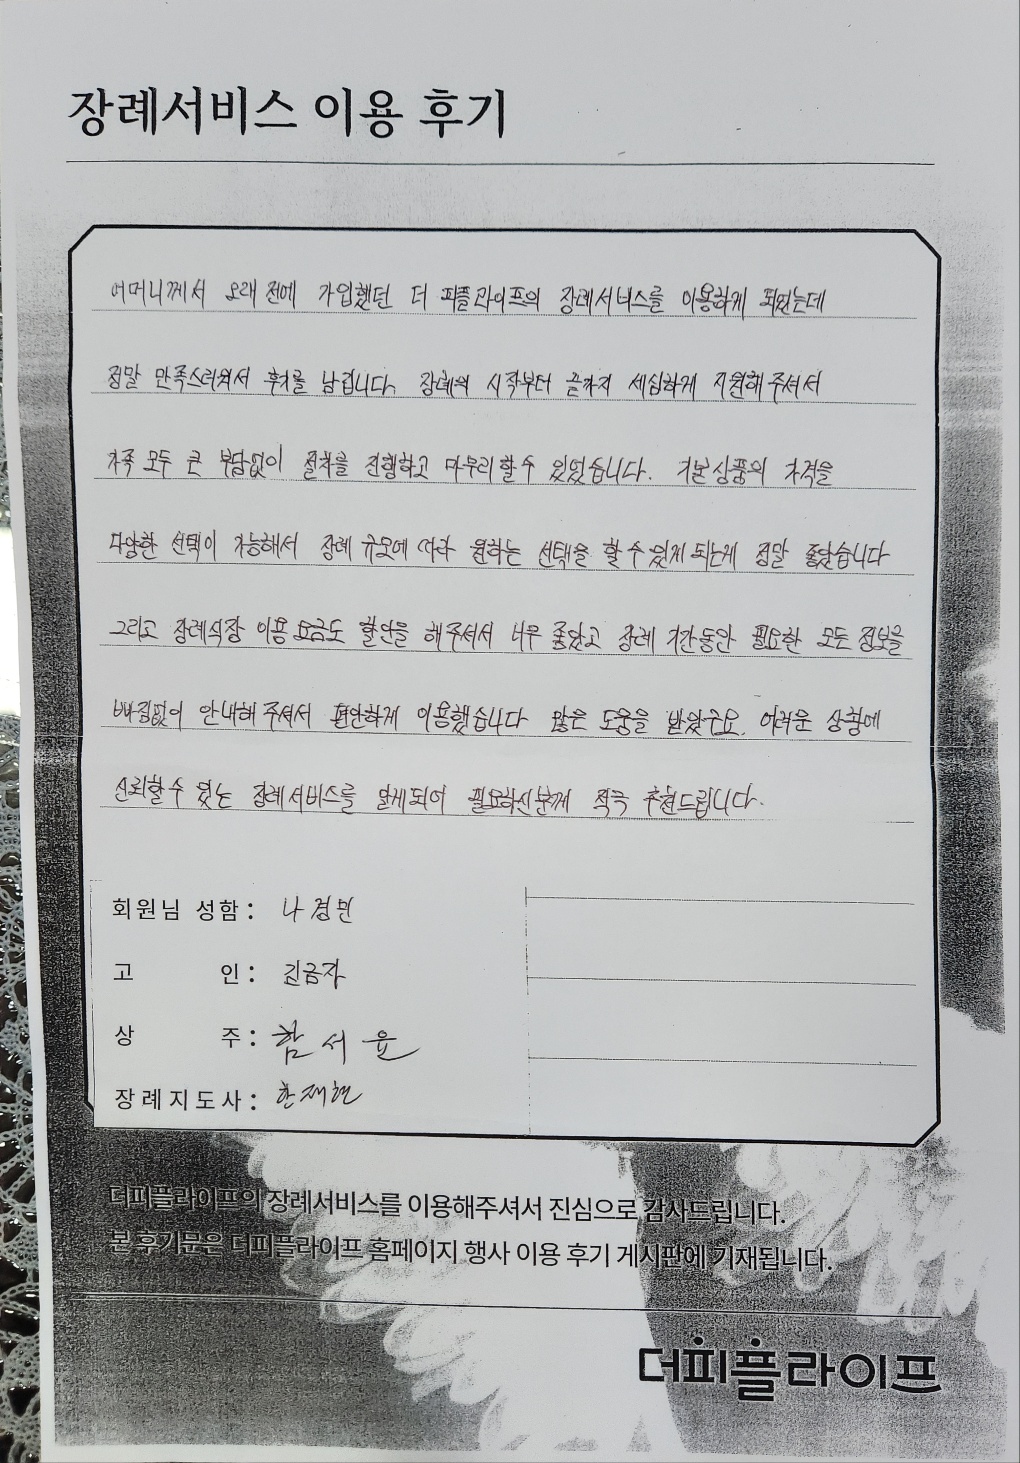 장례서비스 이용 후기
어머니께서 오래 전에 가입했던 더 피플라이프의 장례서비스를 이용하게 되었는데
정말 만족스러워서 후기를 남깁니다. 장례의 시작부터 끝까지 세심하게 지원해 주셔서
가족 모두 큰 부담없이 절차를 진행하고 마무리할 수 있었습니다. 기본상품의 가격을
다양한 선택이 가능해서 장례 규모에 따라 원하는 선택을 할 수 있게 되는게 정말 좋았습니다
그리고 장례식장 이용 요금도 할인을 해주셔서 너무 좋았고 장례 기간동안 필요한 모든 정보를
빠짐없이 안내해 주셔서 편안하게 이용했습니다 많은 도움을 받았구요. 어려운 상황에
신뢰할 수 있는 장례서비스를 알게되어 필요하신분께 적극 추천드립니다.
회원님 성함 : 나경민
고 인 : 김금자
상 주 : 함서윤
장례지도사 : 한재현
더피플라이프의 장례서비스를 이용해주셔서 진심으로 감사드립니다.
본 후기문은 더피플라이프 홈페이지 행사 이용 후기 게시판에 기재됩니다.
더피플라이프